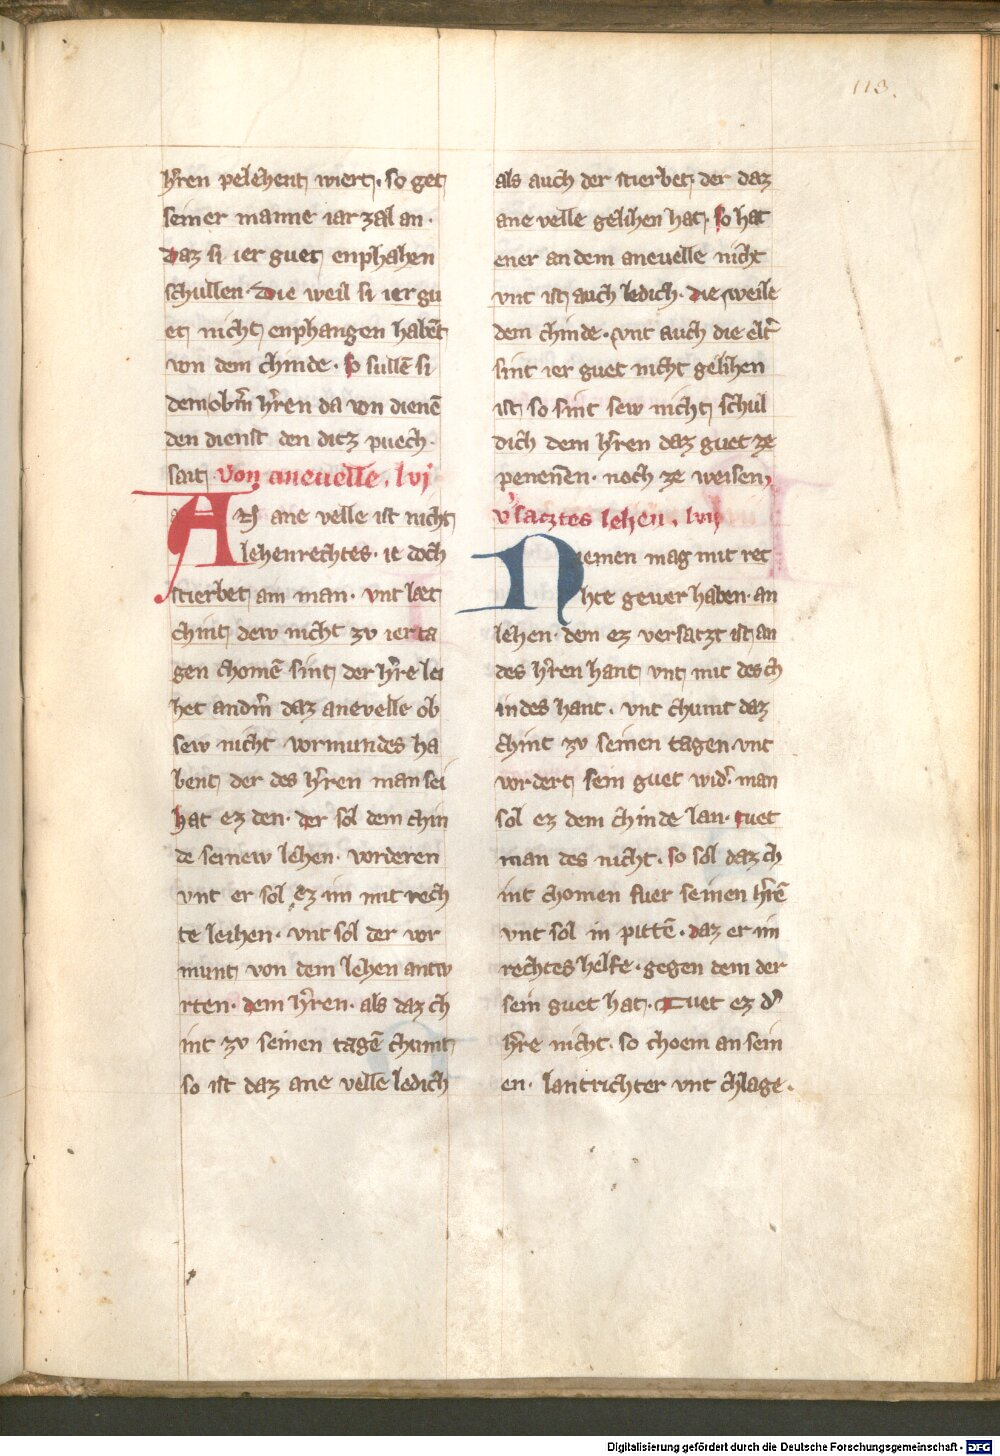 113.
h᷑ren pelehent wiert. so get
seiner manne iar zal an.
daz si ier guet enphahen
schullen. die weil si ier gu
et nicht enphangen habēt
von dem chinde. so sullē si
dem obm̄ h᷑ren da von dienē
den dienst den ditz puech.
sait. von anevelle. lvj
ane velle ist nicht
lehenrechtes. ie doch
stierbet am man. vnt læt
chint dew nicht zv ier ta
gen chomē sint der h᷑re lei
het andm̄ daz anevelle ob
sew nicht vormundes ha
bent der des h᷑ren man sei
hat ez den. der sol dem chin
de seinew lehen. vorderen
vnt er sol ez im mit rech
te leihen. vnt sol der vor
munt von dem lehen antw
rten. dem h᷑ren. als daz ch
int zv seinen tagē chumt
so ist daz ane velle ledich
als auch der stierbet. der daz
ane velle gelihen hat. so hat
ener an dem anevelle nicht
vnt ist auch ledich. die weile
dem chinde. vnt auch die elt᷑
sint ier guet nicht gelihen
ist so sint sew nicht schul
dich dem h᷑ren daz guet ze
penennen. noch ze weisen,
v᷑satztes lehen. lvij
Niemen mag mit rec
hte gewer haben. an
lehen. dem ez versatzt ist an
des h᷑ren hant vnt mit des ch
indes hant. vnt chumt daz
chint zv seinen tagen vnt
vordert sein guet wid᷑. man
sol ez dem chinde lan. tuet
man des nicht. so sol daz ch
int chomen fuer seinen h᷑rē
vnt sol in pittē. daz er im
rechtes helfe. gegen dem der
sein guet hat. Tuet ez d᷑
h᷑re nicht. so choem an sein
en. lantrichter vnt chlage.
Digitalisierung gefördert durch die Deutsche Forschungsgemeinschaft - DFG